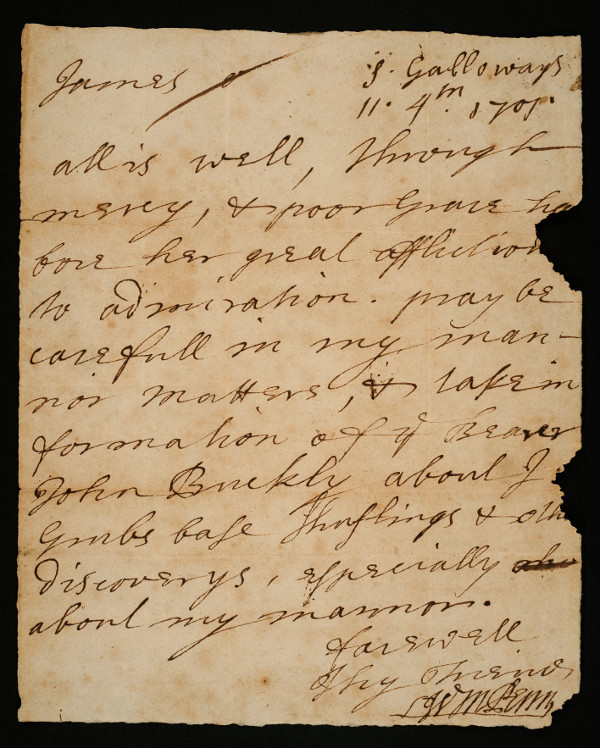 James
S. Galloways
11. 4th 1701.
all is well, through
mercy, & poor Grace ha
bore her great affliction
to admiration. pray be
carefull in my man-
nor matters, & take in
formation of ye Bearer
John Buckly about J.
Grubs base Shuflings & oth
discoverys, especially
about my mannor.
farewell
Thy Friend
Wm Penn